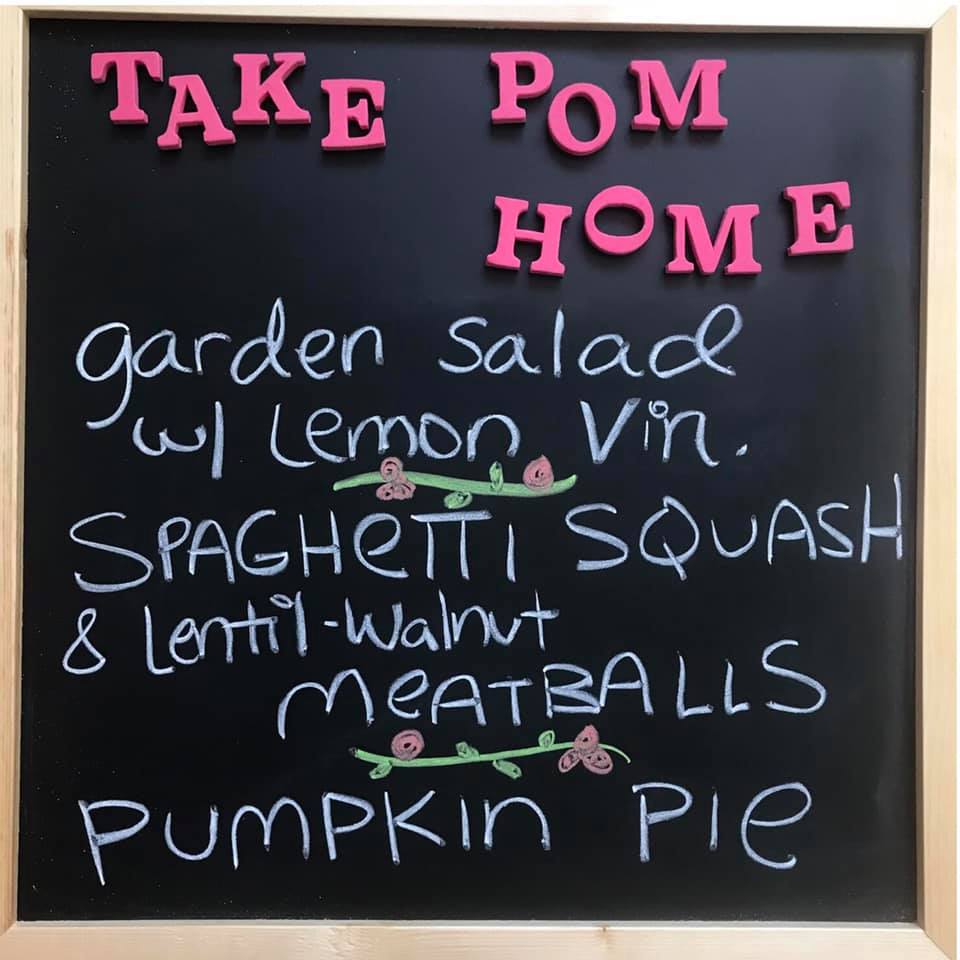 TAKE POM
HOME
garden salad
w/ Lemon Vin.
SPAGHeTTI SQUASH
& Lentil-Walnut
MeATBALLS
PUMPKIN PIe